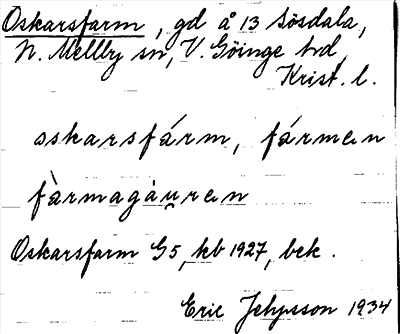 Oskarsfarm, gd å 13 Sösdala,
N. Mellby sn, V. Göinge hd,
Krist. l.
oskarsfárm, fármen
fàrmagáu̯ren
Oskarsfarm G5, kb 1927, bek.
Eric Jehpsson 1934